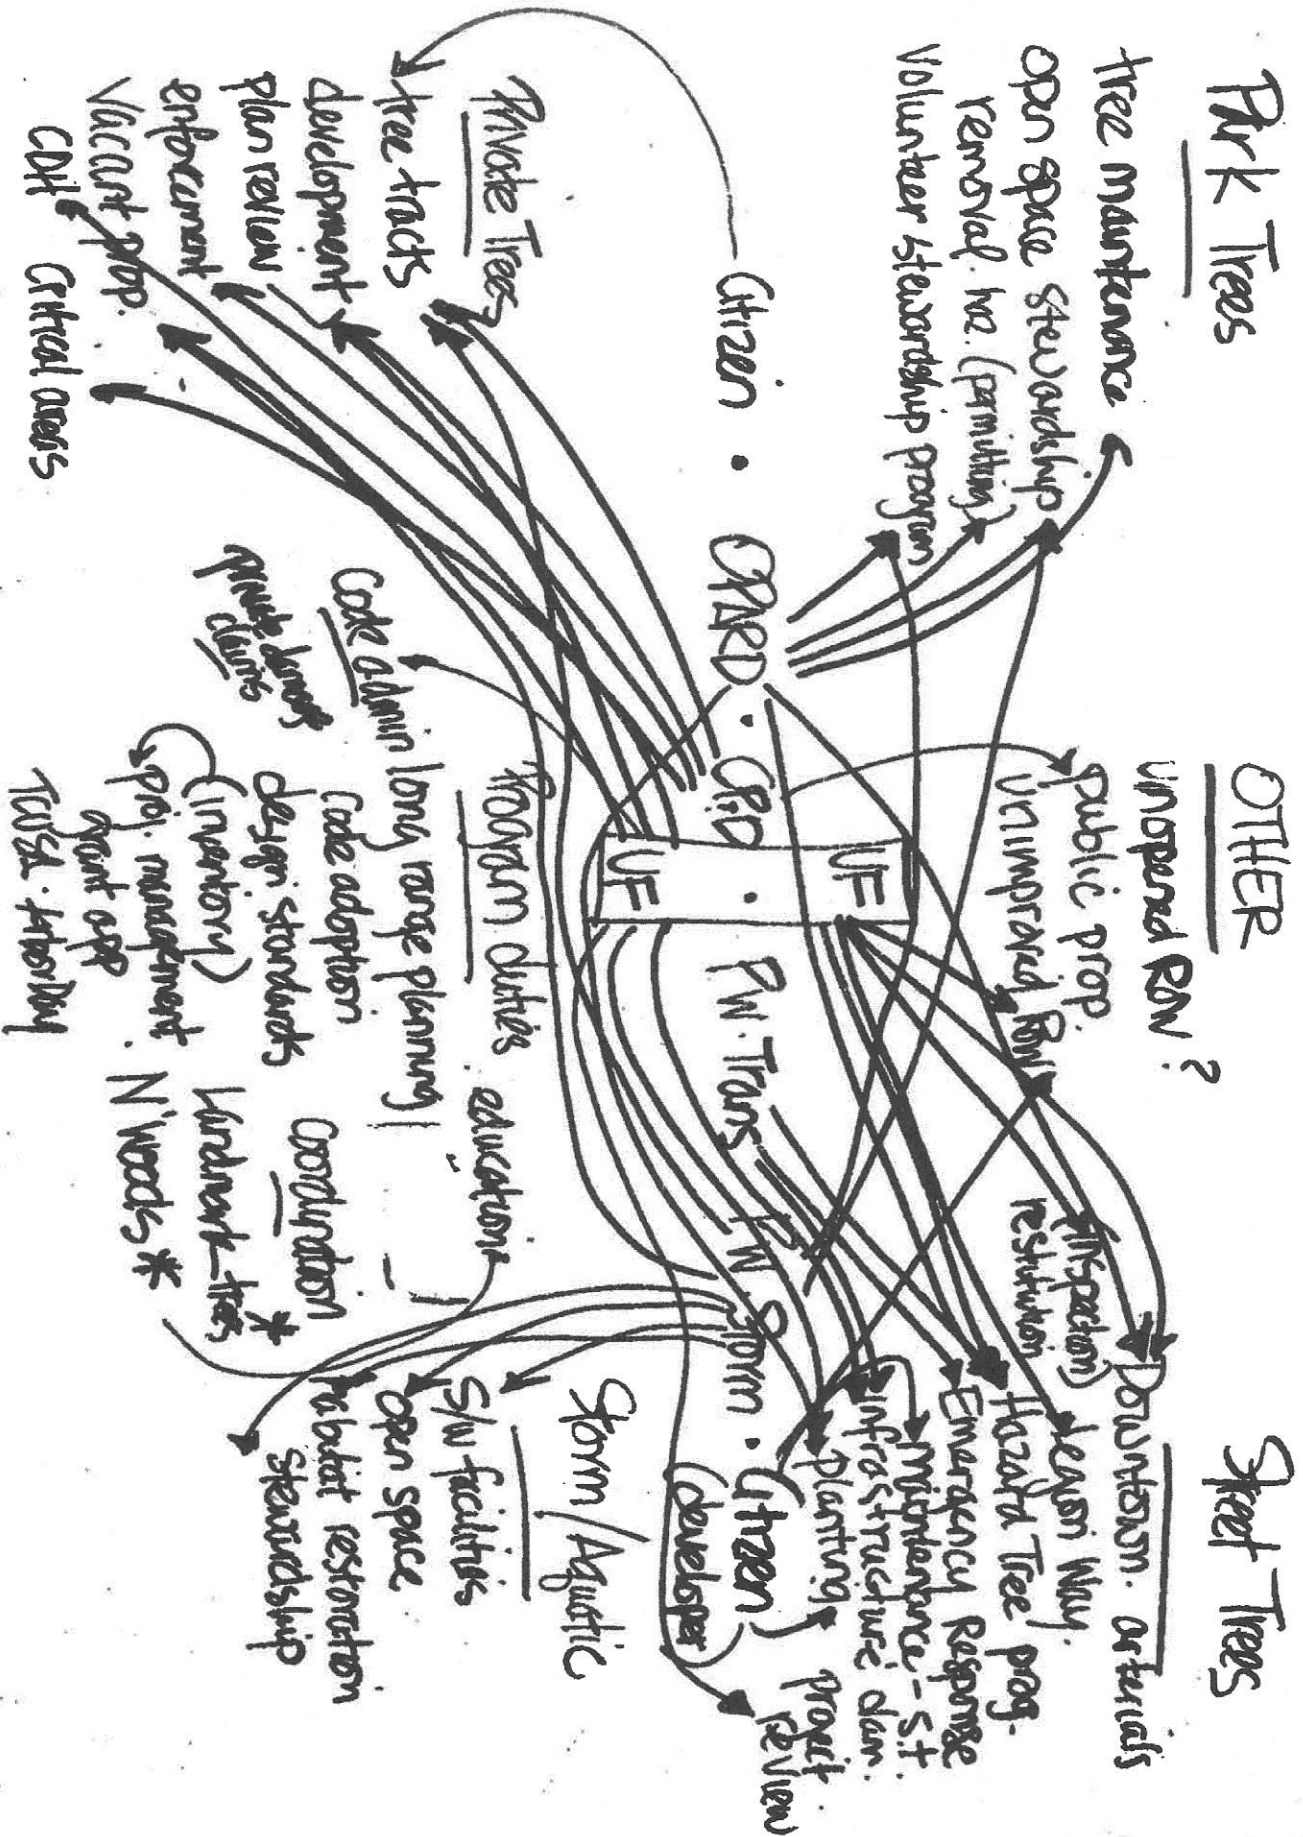 Park Trees
tree maintenance
open space stewardship
removal haz. (permitting)
Volunteer stewardship program
OTHER
unopened ROW ?
public prop.
Unimproved ROW
Street Trees
Downtown. arterials
(inspection)
restitution
Legion Way.
Hazard Tree prog.
Emergency Response
maintenance - s.t.
infrastructure dam.
planting
project
review
Citizen • OPARD • CP&D • PW. Trans PW. Storm • Citizen
(developer)
UF
UF
Private Trees
tree tracts
development
plan review
enforcement
Vacant prop.
CDH Critical areas
Code admin
Program duties
long range planning
Code adoption
design standards
(inventory)
proj. management
grant app
TCUSA • Arbor Day
education
Coordination
Landmark trees *
N'Woods *
Storm/Aquatic
S/W facilities
open space
habitat restoration
stewardship